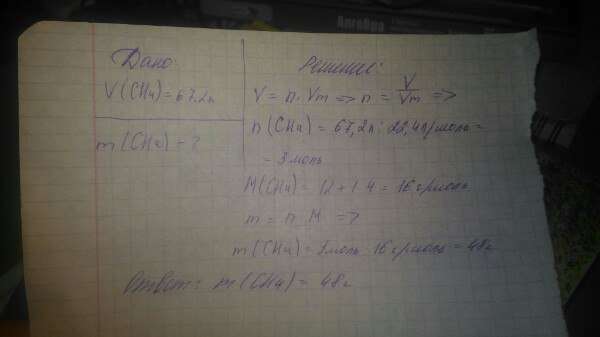 Дано:
V(CH4) = 67.2л
m(CH4) - ?
Решение:
V = n · Vm => n = V/Vm =>
n(CH4) = 67,2л : 22,4л/моль =
= 3моль
M(CH4) = 12 + 1·4 = 16 г/моль
m = n · M =>
m(CH4) = 3моль · 16 г/моль = 48г
Ответ: m(CH4) = 48г
Алгебра